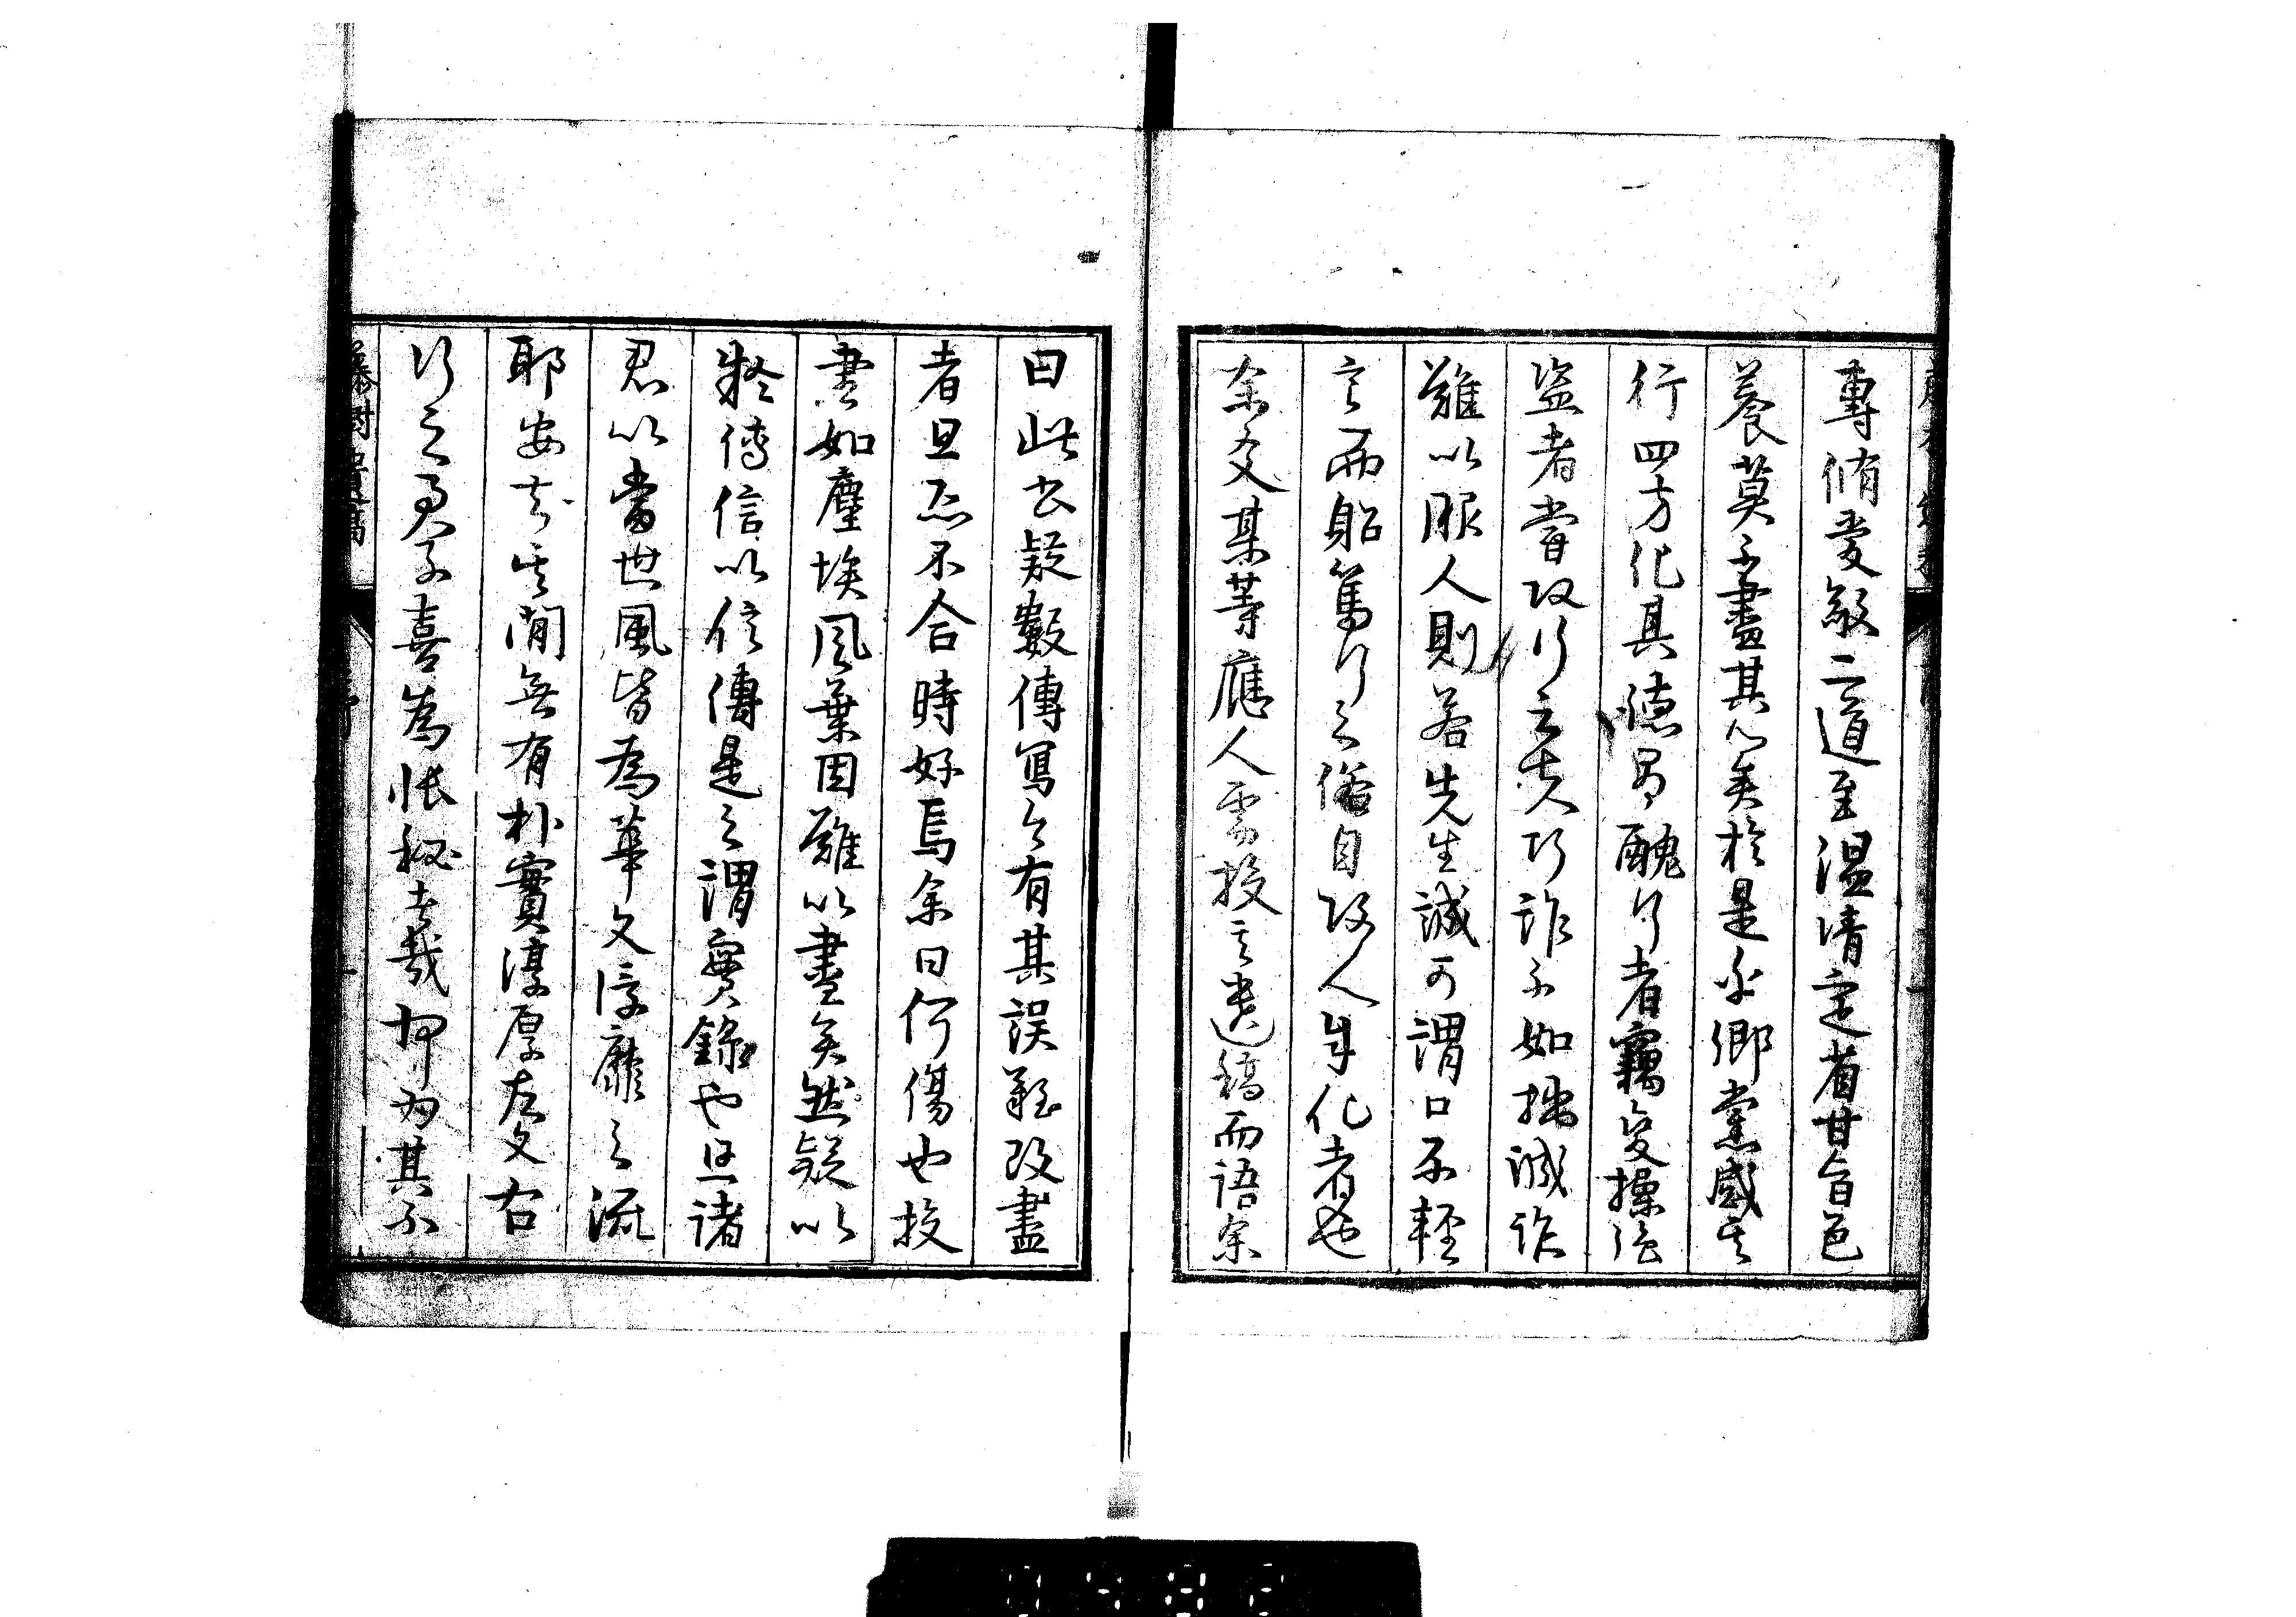 專脩愛敬二道至温凊定省甘旨色
養莫不盡其心矣於是乎鄉黨感其
行四方化其德易醜行者竊変操染
盗者嘗改行云夫巧詐不如拙誠詐
難以服人則若先生誠可謂口不輕
言而躬篤行之俗自改人自化者也
余友某等應人需授之遺稿而語余
曰此書疑數傳寫之有其誤難改盡
者且恐不合時好焉余曰何傷也校
書如塵埃風葉固難以盡矣然疑以
疑傳信以信傳是之謂實錄也且諸
君以當世風皆為華文浮靡之流
耶安知其間無有朴實淳厚左文右
行之君子喜為帳秘者哉抑为其不